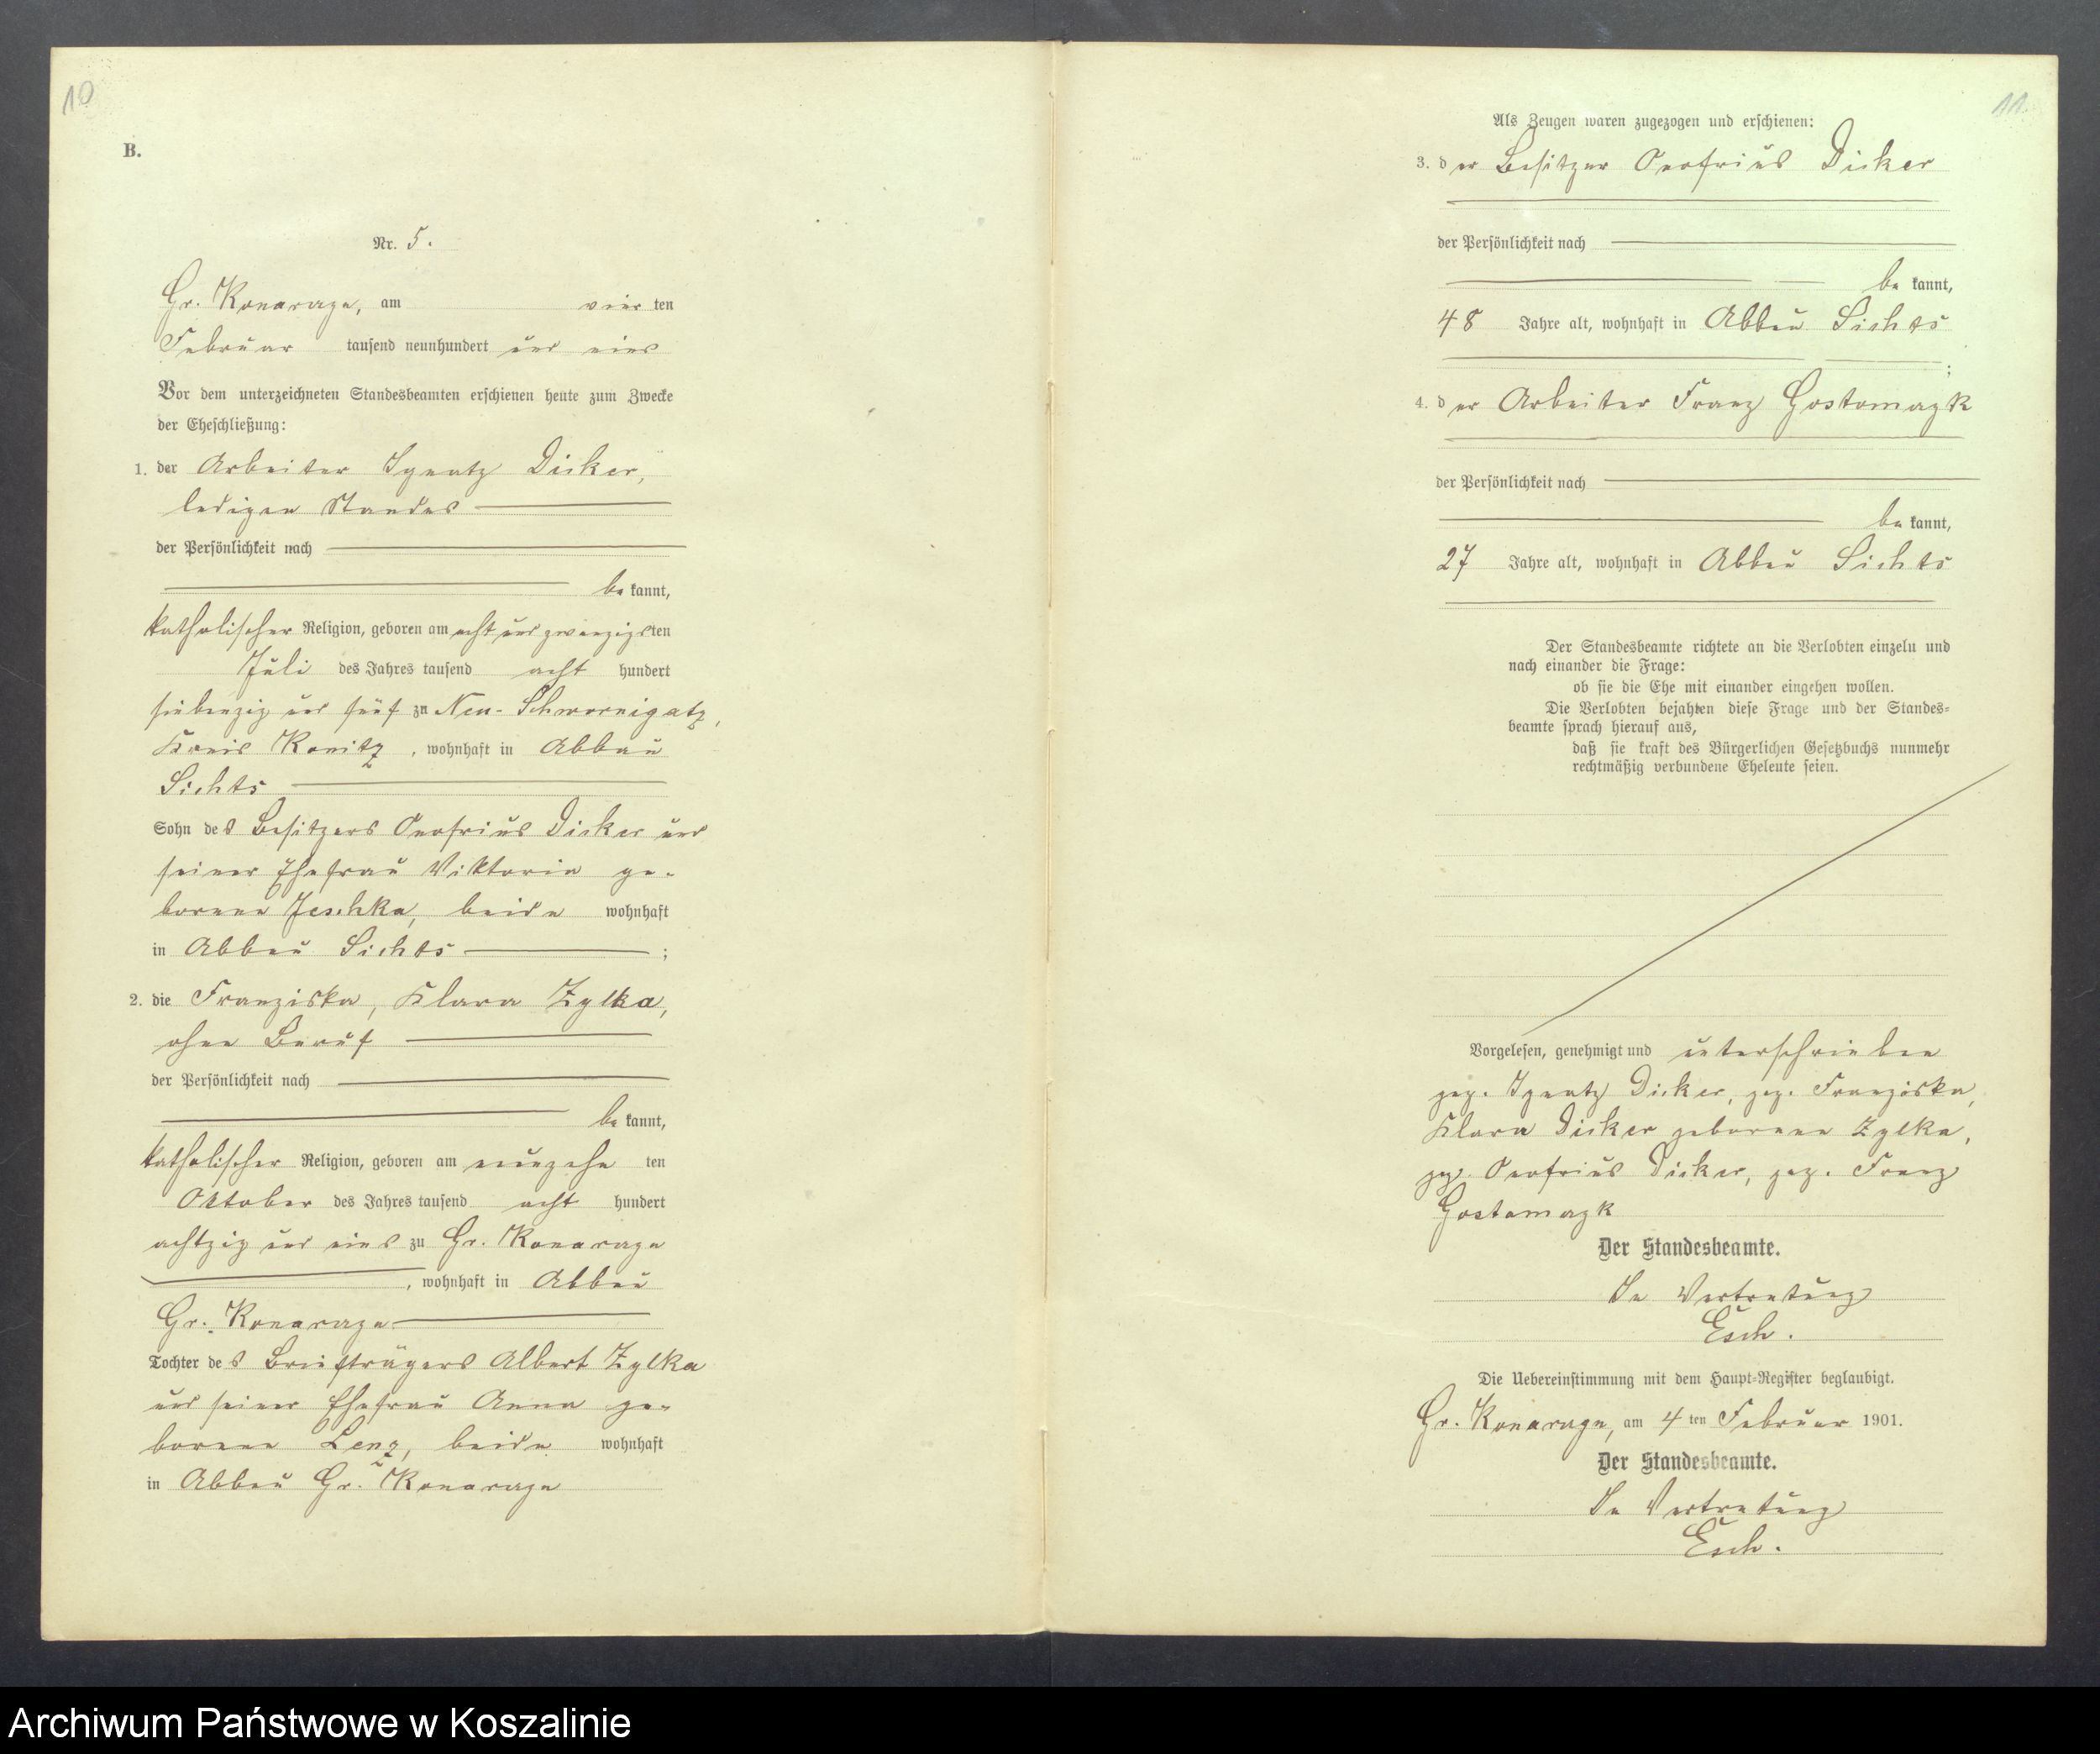 10
B.
Nr. 5.
Gr. Konarczyn, am vierten
Februar tausend neunhundert und eins
Vor dem unterzeichneten Standesbeamten erschienen heute zum Zwecke
der Eheschließung:
1. der Arbeiter Ignatz Dicker,
ledigen Standes
der Persönlichkeit nach
bekannt,
katholischer Religion, geboren am acht und zwanzigsten
Juli des Jahres tausend acht hundert
siebenzig und fünf zu Neu-Schwornigatz,
Kreis Konitz, wohnhaft in Abbau
Sichts
Sohn des Besitzers Onofrius Dicker und
seiner Ehefrau Viktoria ge-
borene Jeschka, beide wohnhaft
in Abbau Sichts ;
2. die Franziska, Klara Zylka,
ohne Beruf
der Persönlichkeit nach
bekannt,
katholischer Religion, geboren am neunzehnten
Oktober des Jahres tausend acht hundert
achtzig und eins zu Gr. Konarczyn
, wohnhaft in Abbau
Gr. Konarczyn
Tochter des Briefträgers Albert Zylka
und seiner Ehefrau Anna ge-
borene Lenz, beide wohnhaft
in Abbau Gr. Konarczyn
11
Als Zeugen waren zugezogen und erschienen:
3. der Besitzer Onofrius Dicker
der Persönlichkeit nach
bekannt,
48 Jahre alt, wohnhaft in Abbau Sichts
;
4. der Arbeiter Franz Gostomczyk
der Persönlichkeit nach
bekannt,
27 Jahre alt, wohnhaft in Abbau Sichts
Der Standesbeamte richtete an die Verlobten einzeln und
nach einander die Frage:
ob sie die Ehe mit einander eingehen wollen.
Die Verlobten bejahten diese Frage und der Standes-
beamte sprach hierauf aus,
daß sie kraft des Bürgerlichen Gesetzbuchs nunmehr
rechtmäßig verbundene Eheleute seien.
Vorgelesen, genehmigt und unterschrieben
gez. Ignatz Dicker, gez. Franziska,
Klara Dicker geborene Zylka,
gez. Onofrius Dicker, gez. Franz
Gostomczyk
Der Standesbeamte.
In Vertretung
Esch.
Die Uebereinstimmung mit dem Haupt-Register beglaubigt.
Gr. Konarczyn, am 4ten Februar 1901.
Der Standesbeamte.
In Vertretung
Esch.
Archiwum Państwowe w Koszalinie